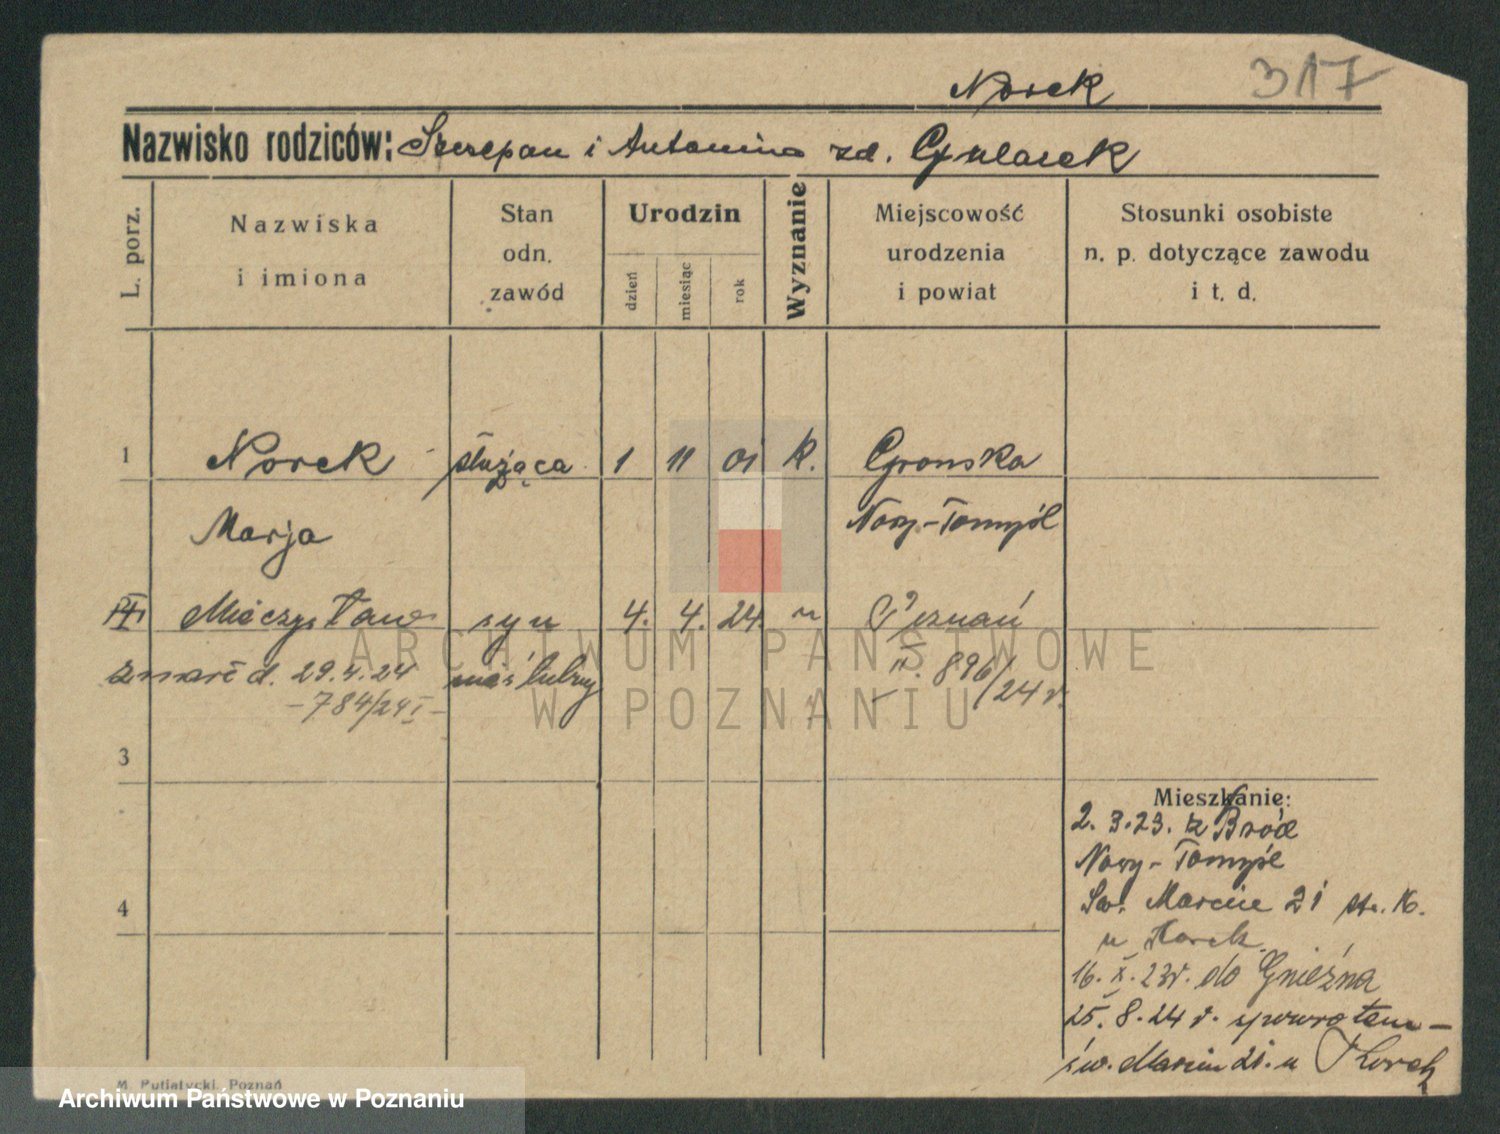 Norek 317
Nazwisko rodziców: Szczepan i Antonina zd.
L. porz.
Nazwiska i imiona
Stan odn. zawód
Urodzin
dzień miesiąc rok
Wyznanie
Miejscowość urodzenia i powiat
Stosunki osobiste n. p. dotyczące zawodu i t. d.
1 Norek służąca 1 11 01 k. Gronsko
Marja Nowy-Tomyśl
Mieczysław syn 4. 4. 24. " Poznań
zmarł d. 29.4.24 nieślubny II. 896/24 r.
-784/24 I-
3
Mieszkanie:
2. 3. 23. z Bród
Nowy-Tomyśl
4
Św. Marcin 21 ptr. k.
u
16. X. 23 r. do Gniezna
25. 8. 24 r. spowrotem -
św. Marcin 21. u
M. Putiatycki, Poznań
ARCHIWUM PAŃSTWOWE
W POZNANIU
Archiwum Państwowe w Poznaniu